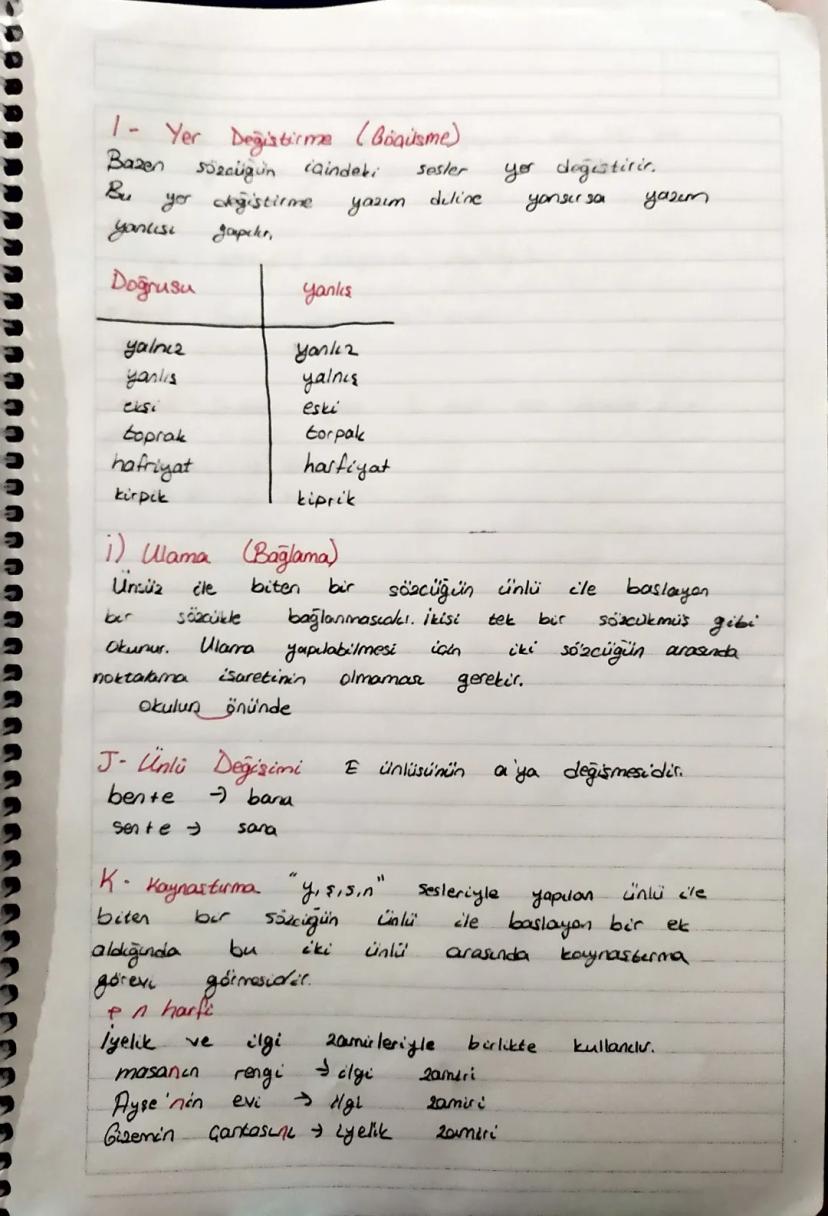 I- Yer Değiştirme (Göçüşme)
Bazen sözcüğün içindeki sesler yer değiştirir.
Bu yer değiştirme yazım diline yansırsa yazım
yanlışı yapılır.
Doğrusu yanlış
yalnız yanlız
yanlış yalnış
ekşi eşki
toprak torpak
hafriyat harfiyat
kirpik kiprik
i) Ulama (Bağlama)
Ünsüz ile biten bir sözcüğün ünlü ile başlayan
bir sözcükle bağlanmasıdır. İkisi tek bir sözcükmüş gibi
okunur. Ulama yapılabilmesi için iki sözcüğün arasında
noktalama işaretinin olmaması gerekir.
okulun önünde
J- Ünlü Değişimi E ünlüsünün a'ya değişmesidir.
ben+e → bana
sen+e → sana
K- Kaynaştırma "y, ş, s, n" sesleriyle yapılan ünlü ile
biten bir sözcüğün ünlü ile başlayan bir ek
aldığında bu iki ünlü arasında kaynaştırma
görevi görmesidir.
n harfi
İyelik ve ilgi zamirleriyle birlikte kullanılır.
masanın rengi → ilgi zamiri
Ayşe'nin evi → ilgi zamiri
Gizemin çantasını → iyelik zamiri